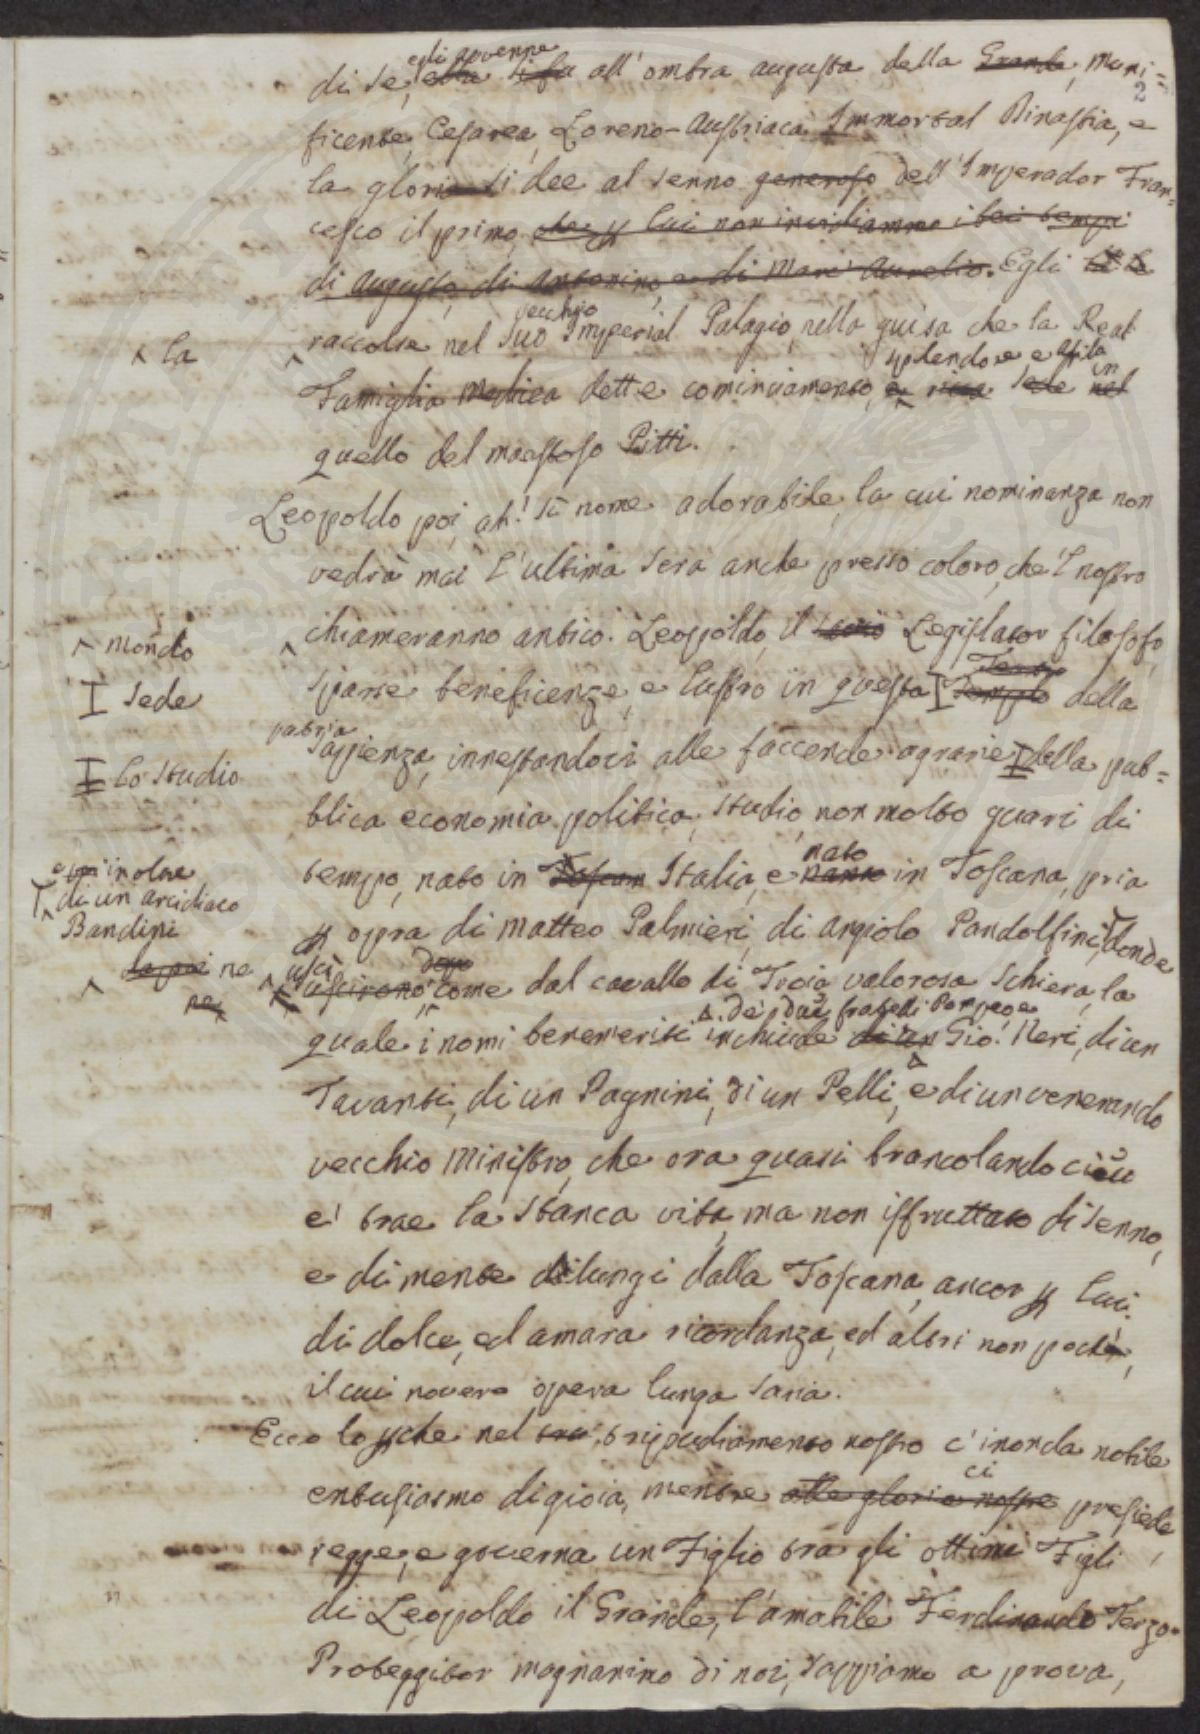 egli avvenne
di se, ella si fu all' ombra augusta della Grande, Muni=
2
ficente, Cesarea, Loreno-Austriaca Immortal Dinastia, e
la gloria si dee al senno generoso dell' Imperador Fran=
cesco il primo, che p lui non invidiammo i bei tempi
di Augusto, di Antonino, e di Marc' Aurelio. Egli
vecchio
raccolse nel suo Imperial Palagio, nella guisa che la Real
^ la
splendore e asilo in
Famiglia Medicea dette cominciamento, e ricca sede nel
quello del maestoso Pitti.
Leopoldo poi, ah! sì nome adorabile, la cui nominanza non
vedrà mai l'ultima sera anche presso coloro, che 'l nostro
^ mondo
chiameranno antico. Leopoldo, il Legislator filosofo,
Tempio
I sede
sparse beneficenze, e lustro in questa I Tempio della
patria
sapienza, innestandoci alle faccende agrarie della pub=
lo studio
blica economia politica, studio, non molto guari di
nato
tempo, nato in Toscana Italia, e nanto in Toscana, pria
inoltre
di un arcidiaco
Bandini
p opra di Matteo Palmieri, di Angiolo Pandolfini, donde
la poi ne
ne
uscì
uscirono come dal cavallo di Troia valorosa schiera, la
de' due fratelli Pompeo e
quale i nomi benemeriti inchiude di un Gio: Neri, di un
Tavanti, di un Pagnini, di un Pelli, e di un venerando
vecchio Ministro, che ora quasi brancolando
e' trae la stanca vita, ma non isfruttato di senno,
e di mente dilungi dalla Toscana, ancor p lui
di dolce, ed amara ricordanza, ed altri non pochi,
il cui novero opera lunga saria.
Ecco lo pche nel tri tripudiamento nostro c' inonda nobile
ci
entusiasmo di gioia, mentre alle glorie nostre presiede,
regge, e governa un Figlio tra gli ottimi Figli
di Leopoldo il Grande, l'amabile Ferdinando Terzo.
Proteggitor magnanimo di noi, sappiamo a prova,